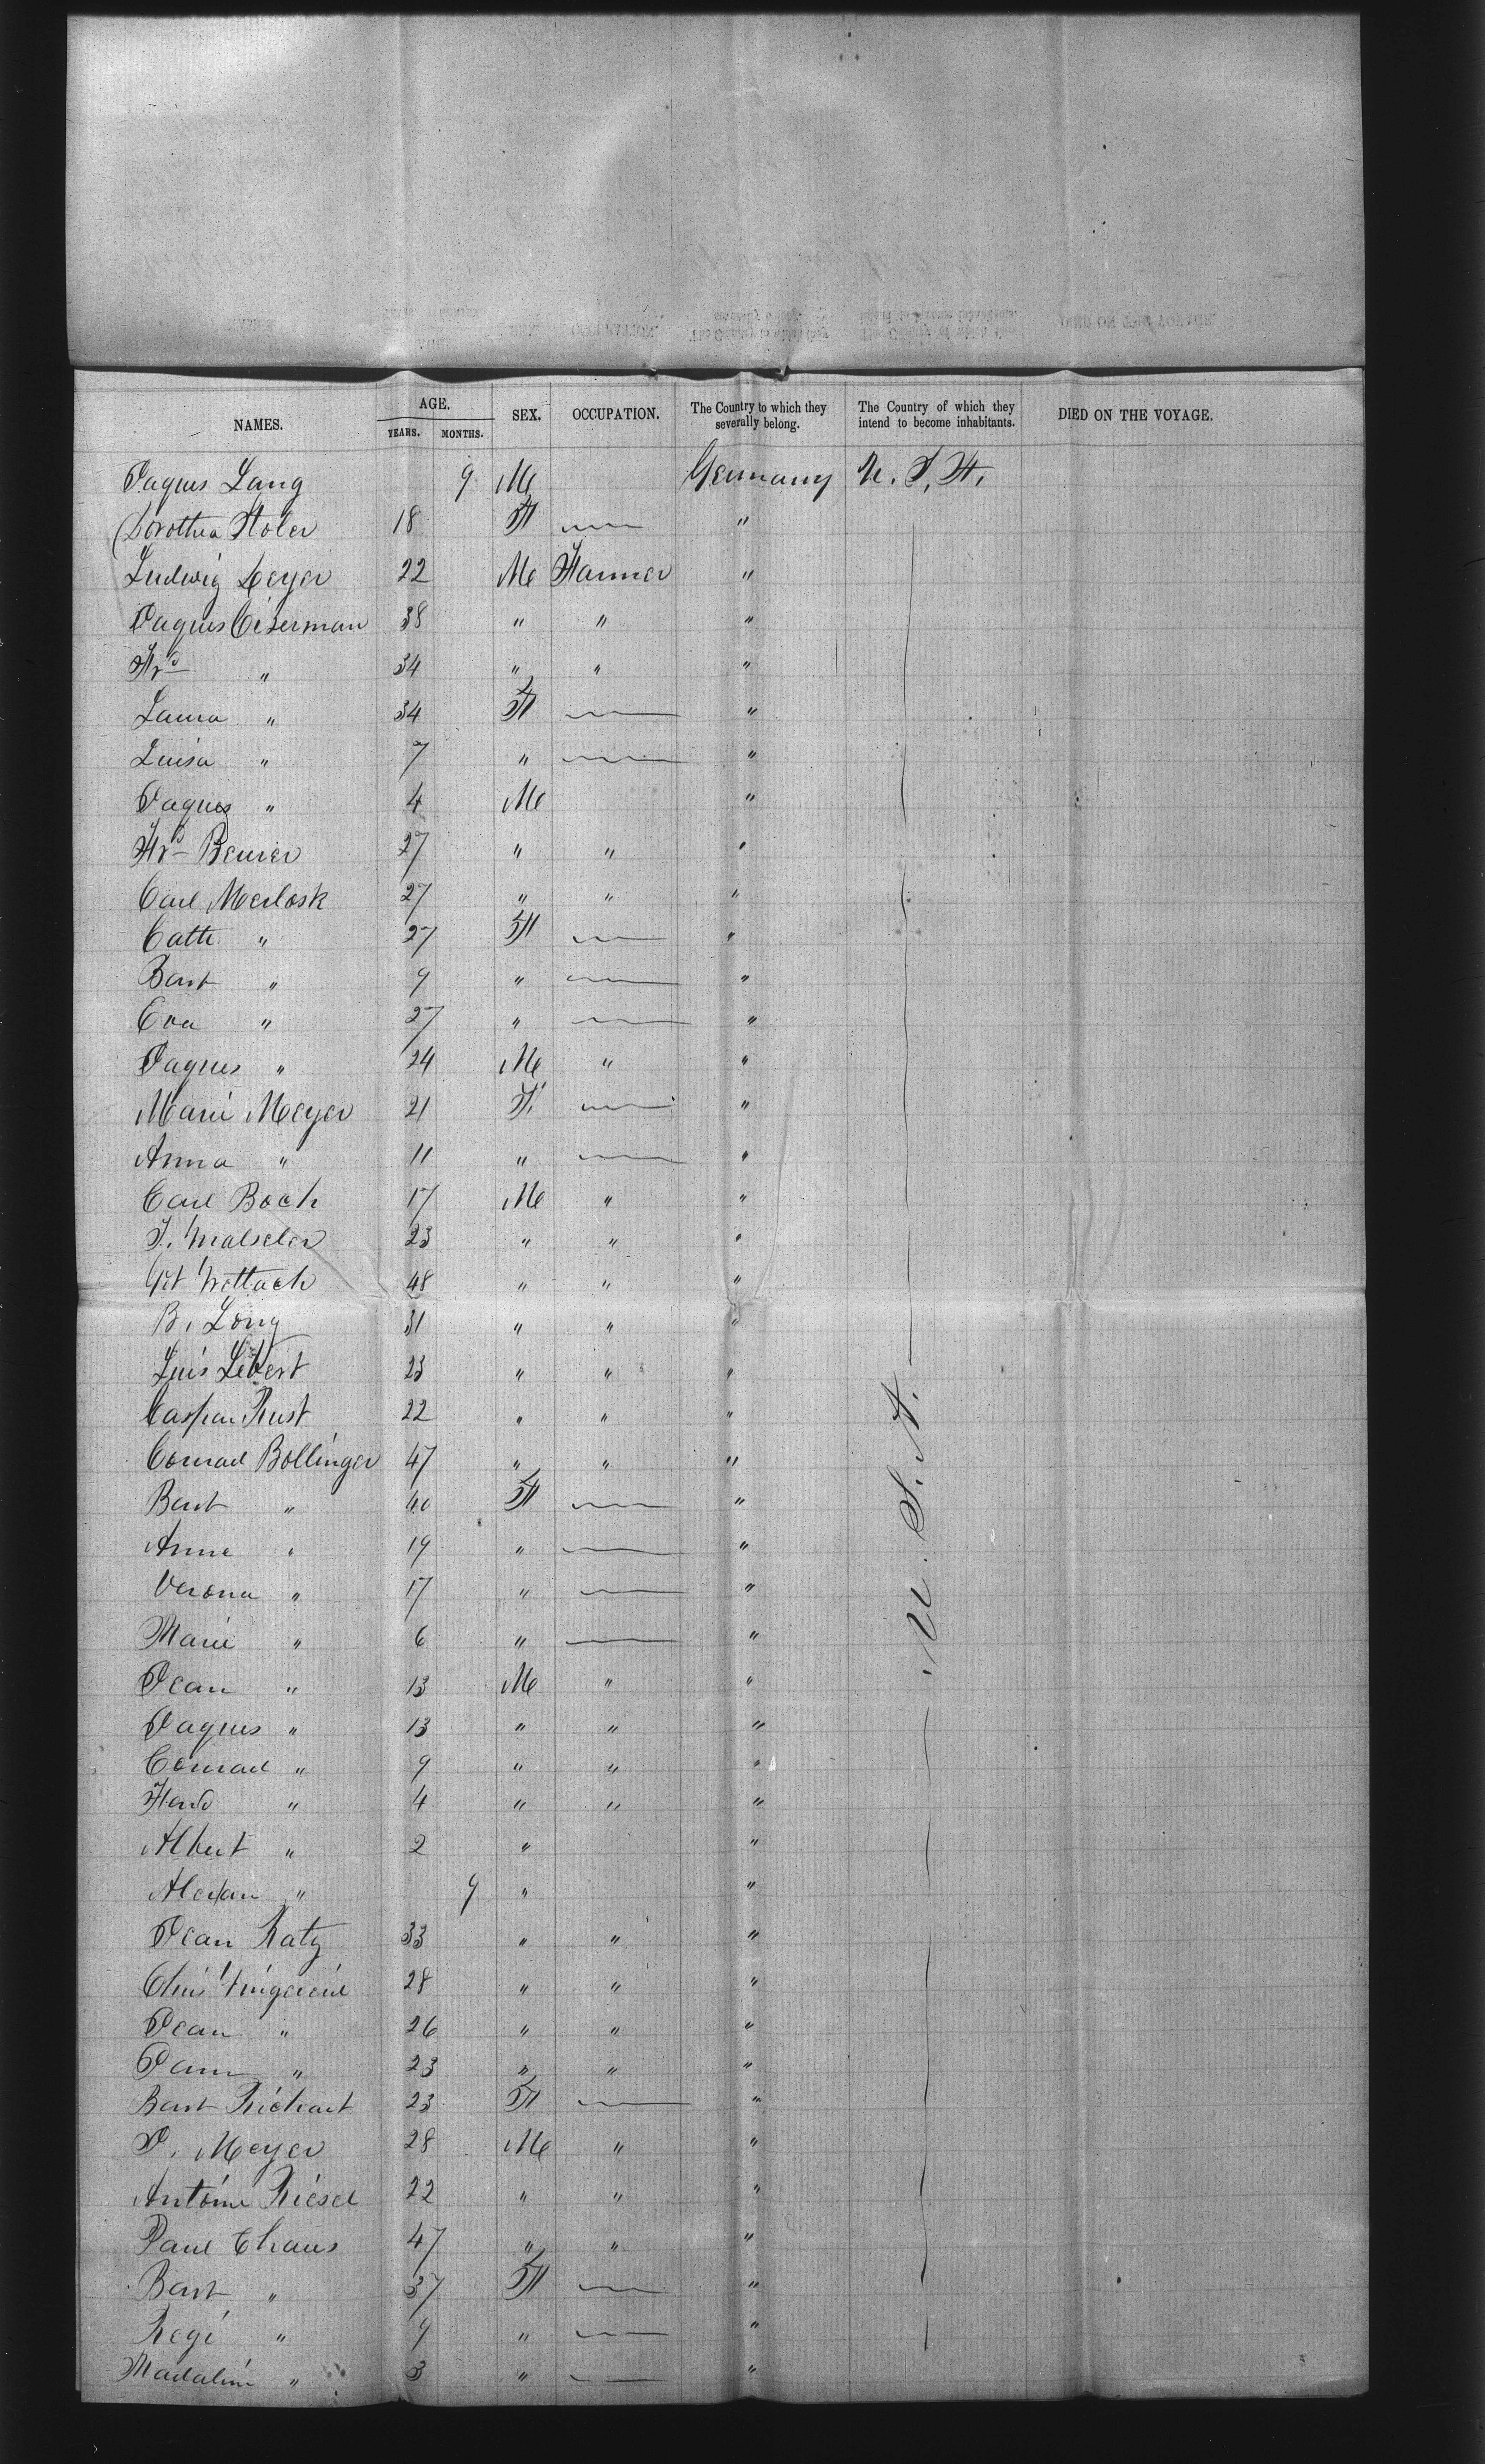 NAMES. AGE. SEX. OCCUPATION. The Country to which they severally belong. The Country of which they intend to become inhabitants. DIED ON THE VOYAGE.
YEARS. MONTHS.
Jaques Lang 9 M Germany U. S. A.
Dorothea Stoler 18 F — "
Ludwig Beyer 22 M Farmer "
Jaques Eiserman 38 " " "
Frs " 34 " " "
Laura " 34 F — "
Luisa " 7 " — "
Jaques " 4 M "
Frs Beurer 27 " " "
Carl Merlosk 27 " " "
Cath " 27 F — "
Barb " 9 " — "
Eva " 27 " — "
Jaques " 24 M " "
Marie Meyer 21 F. — "
Anna " 11 " — "
Carl Boch 17 M " "
F. Walseler 23 " " "
Got Wottach 48 " " "
B. Long 31 " " "
Luis Lebert 23 " " "
Caspar Rust 22 " " "
Conrad Bollinger 47 " " "
Barb " 40 F — " U. S. A.
Anne " 19 " — "
Verona " 17 " — "
Marie " 6 " — "
Jean " 13 M " "
Jaques " 13 " " "
Conrad " 9 " " "
Ferd " 4 " " "
Albert " 2 " "
Alexan " 9 " "
Jean Katz 33 " " "
Chris 28 " " "
Jean " 26 " " "
" 23 " " "
Barb Richart 23 F — "
J. Meyer 28 M " "
Antoine Riesel 22 " " "
Paul Chaus 47 " " "
Barb " 37 F — "
Regi " 9 " — "
Madalin " 3 " — "